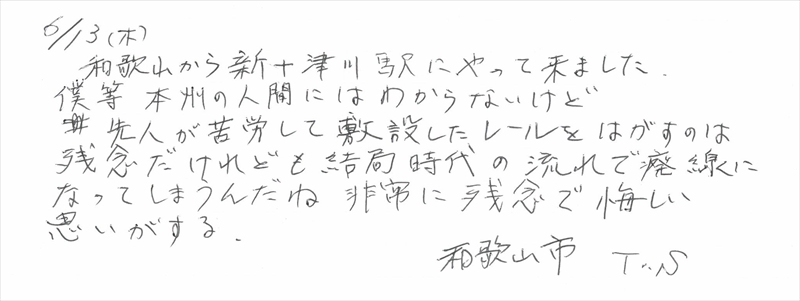 6/13(木)
和歌山から新十津川駅にやって来ました.
僕等本州の人間にはわからないけど
先人が苦労して敷設したレールをはがすのは
残念だけれども結局時代の流れで廃線に
なってしまうんだね 非常に残念で悔しい
思いがする.
和歌山市 T..S